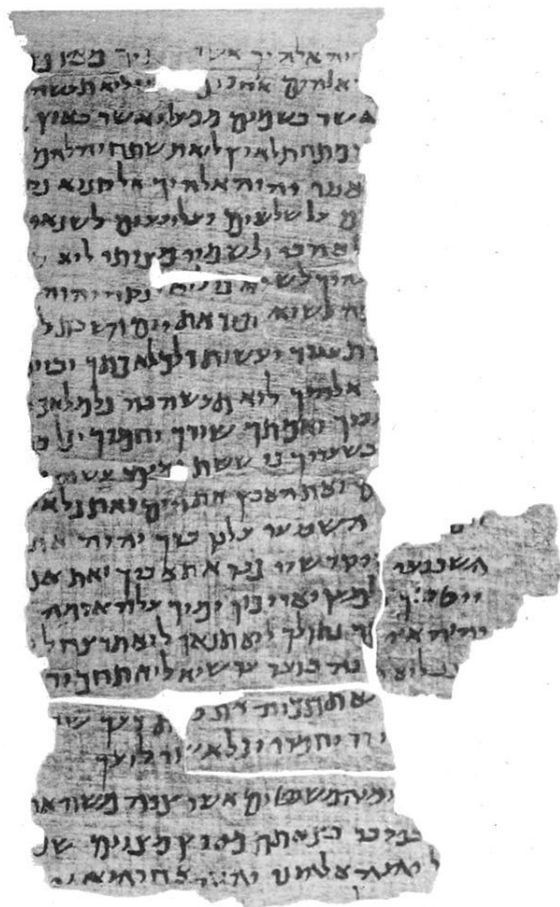 יהוה אלהיך אשר תיך מארץ
אלהים אחרים ני לוא תעשה
אשר בשמים ממעל ואשר בארץ
מתחת לארץ לוא תשתחוה להם
אנכי יהוה אלהיך אל קנוא
ם על שלשים ועל רבעים לשנאי
לאהבי ולשמרי מצותי לוא
להיך לשוא לוא ינקה יהוה
לשוא זכור את יום השבת ל
תעבוד ועשית כל מלאכתך וביום
אלהיך לוא תעשה בה כל מלאכה
עבדך ואמתך שורך וחמרך וכל ב
בשעריך כי ששת ימים עשה
ם ואת הארץ את הים ואת כל א
השביעי על כן ברך יהוה את
השביעי ויקדשיו כבד את אביך ואת אמ
ייטב לך ולמען יאריכון ימיך על האדמה
יהוה אלהיך נתן לך לוא תנאף לוא תרצח לו
לוא ברעך עד שוא לוא תחמוד
את בית רעך שד
ורו וחמרו וכל אשר לרעך
והמשפטים אשר צוה משה את
במדבר בצאתם מארץ מצרים שמ
ל יהוה אלהינו יהוה אחד הוא